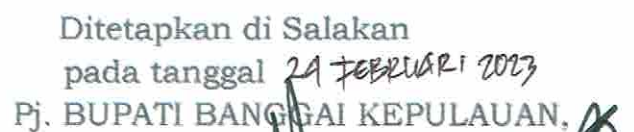 Ditetapkan di Salakan
pada tanggal 24 FEBRUARI 2023
Pj. BUPATI BANGGAI KEPULAUAN,